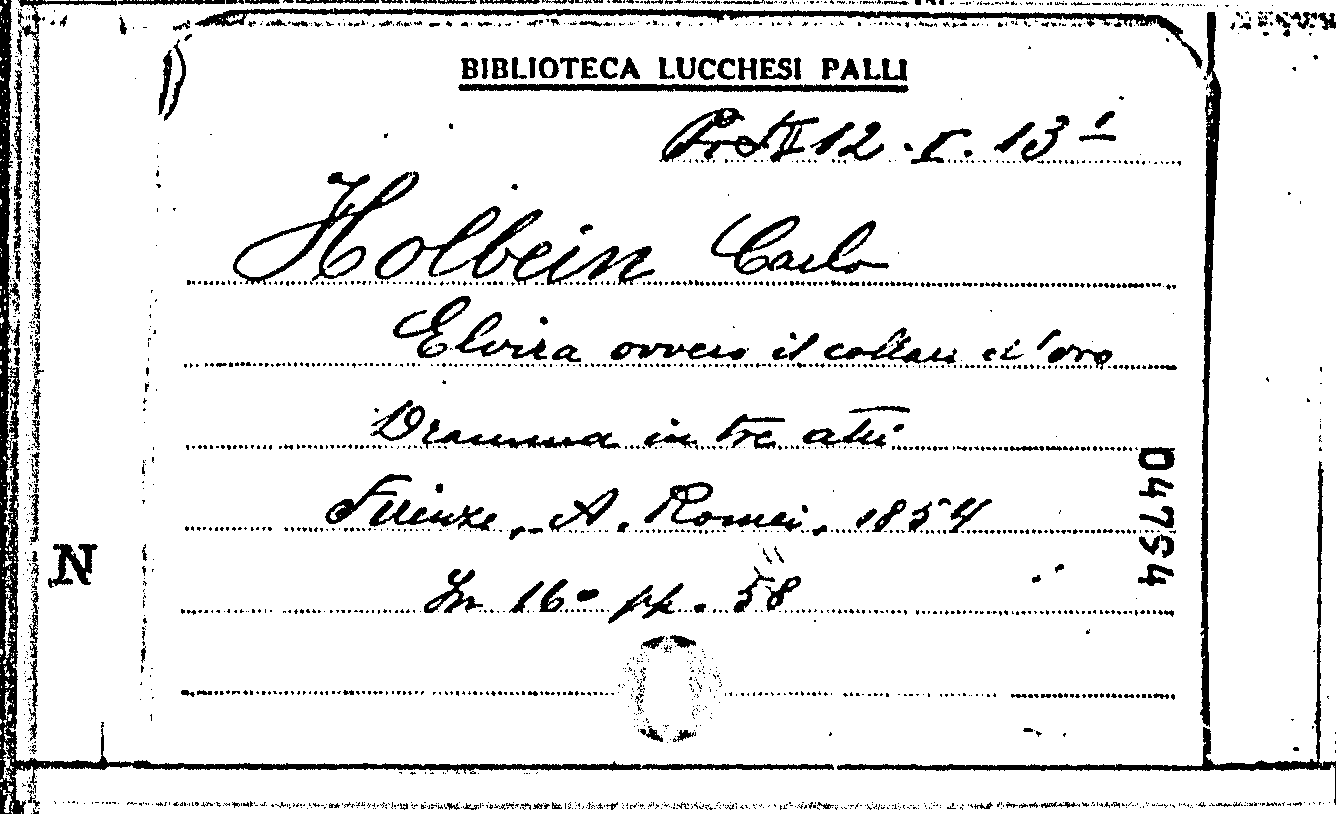 BIBLIOTECA LUCCHESI PALLI
12. I. 13¹
Holbein Carlo
Elvira ovvero il collare d'oro
Dramma in tre atti
Firenze, A. Romei, 1854
In 16º pp. 58
04754
N